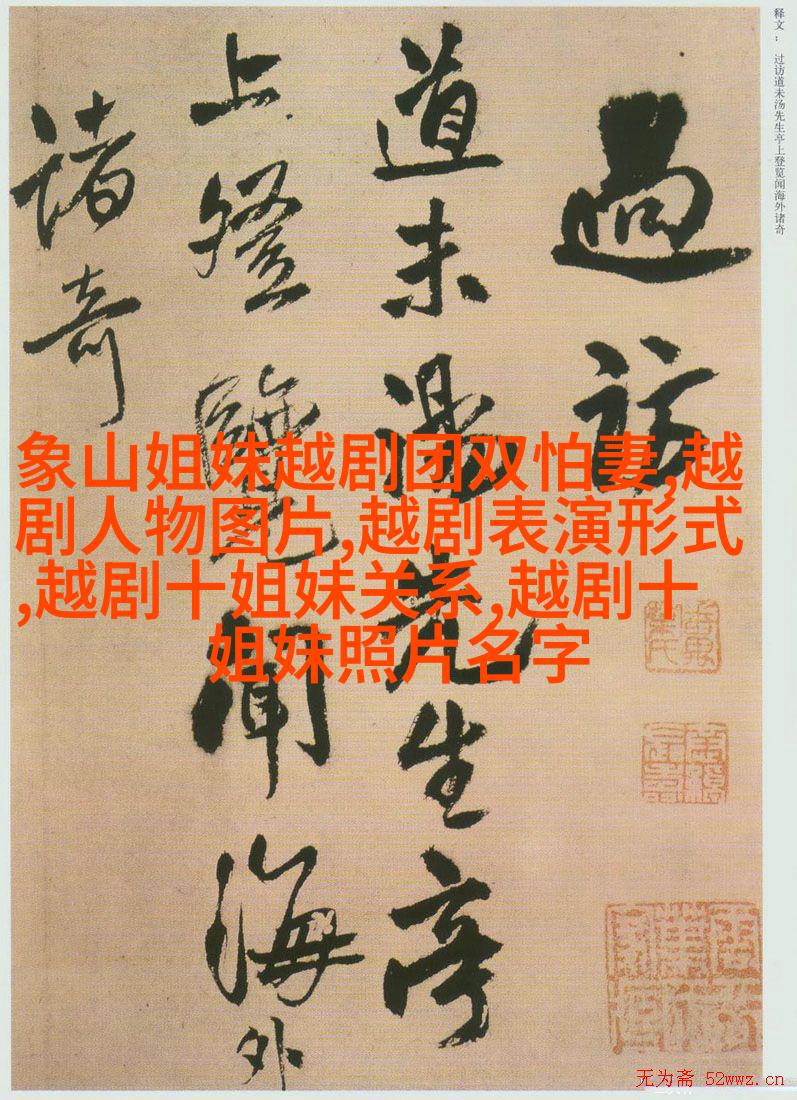 释文： 过访道未汤先生亭上登览闻海外诸奇
過訪
道未湯先生亭
上登覽聞海外
諸奇
象山姐妹越剧团双怕妻,越
剧人物图片,越剧表演形式
,越剧十姐妹关系,越剧十
姐妹照片名字
无为斋 52wwz.cn